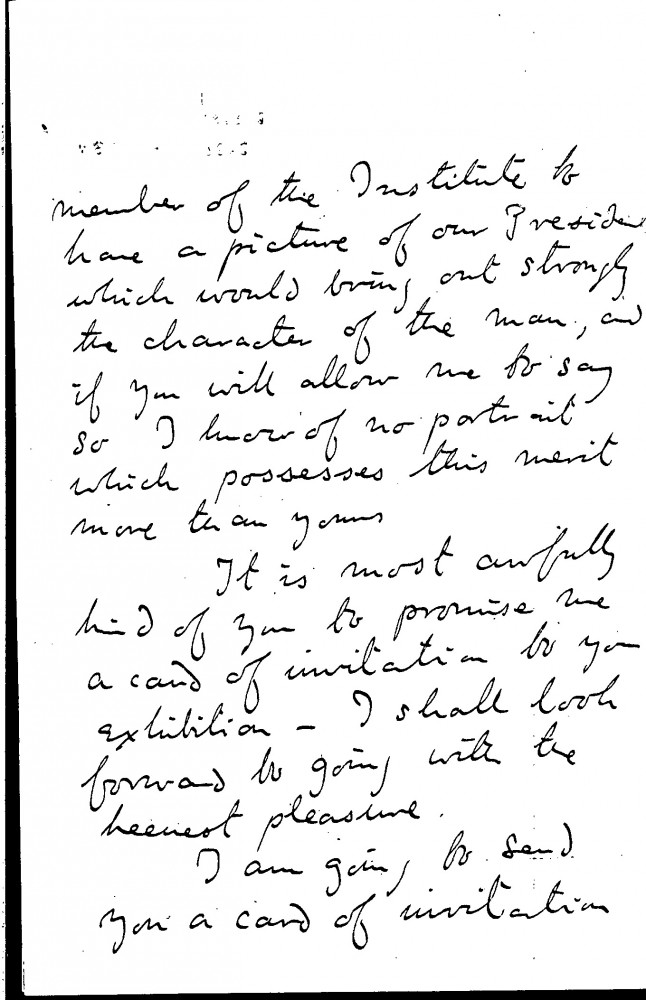 member of the Institute to
have a picture of our Presiden
which would bring out strongly
the character of the man, and
if you will allow me to say
so I know of no portrait
which possesses this merit
more than yours
It is most awfully
kind of you to promise me
a card of invitation to you
exhibition – I shall look
forward to going with the
keenest pleasure.
I am going to send
you a card of invitation